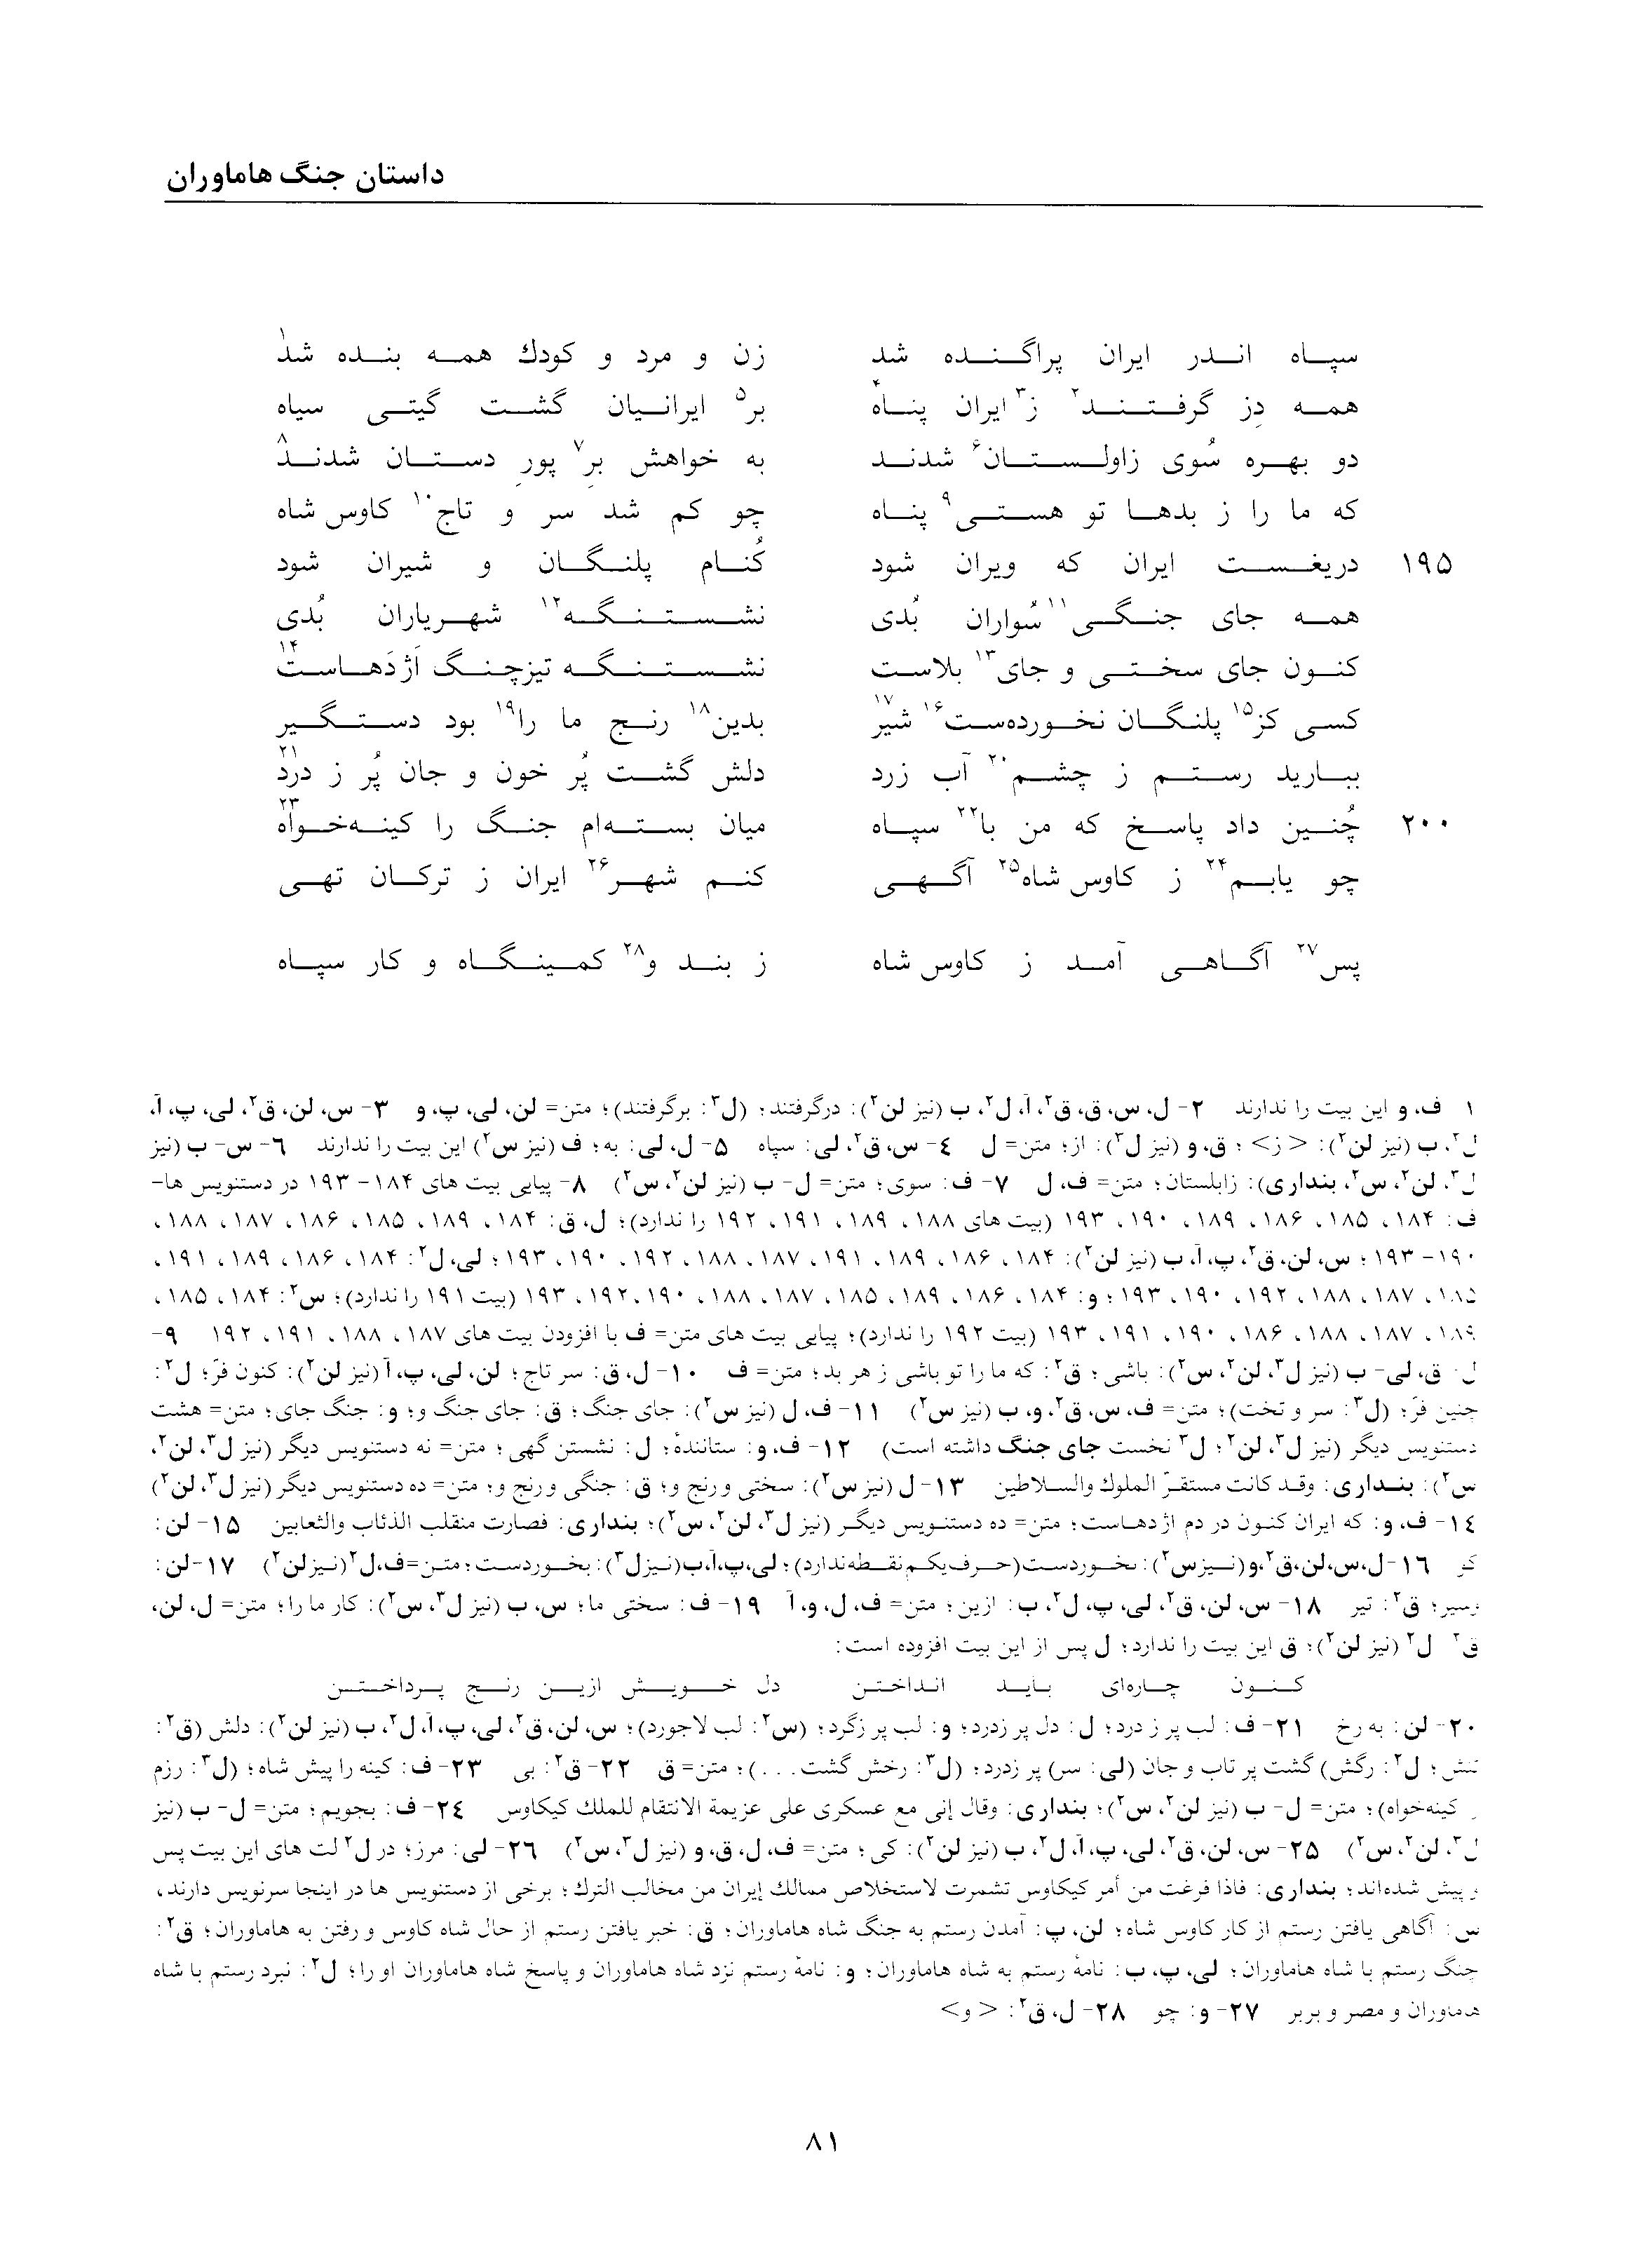 داستان جنگ هاماوران
سپاه اندر ایران پراگنده شد زن و مرد و کودك همه بنده شد۱
همه دِز گرفتند۲ ز۳ ایران پناه۴ بر۵ ایرانیان گشت گیتی سیاه
دو بهره سُوی زاولستان۶ شدند به خواهش بر۷ پورِ دستان شدند۸
که ما را ز بدها تو هستی۹ پناه چو کم شد سر و تاج۱۰ کاوس شاه
۱۹۵ دریغست ایران که ویران شود کُنام پلنگان و شیران شود
همه جای جنگی۱۱ سُواران بُدی نشستنگه۱۲ شهریاران بُدی
کنون جای سختی و جای۱۳ بلاست نشستنگه تیزچنگ اَژدَهاست۱۴
کسی کز۱۵ پلنگان نخورده‌ست۱۶ شیر۱۷ بدین۱۸ رنج ما را۱۹ بود دستگیر
ببارید رستم ز چشم۲۰ آب زرد دلش گشت پُر خون و جان پُر ز درد۲۱
۲۰۰ چُنین داد پاسخ که من با۲۲ سپاه میان بسته‌ام جنگ را کینه‌خواه۲۳
چو یابم۲۴ ز کاوس شاه۲۵ آگهی کنم شهر۲۶ ایران ز ترکان تهی
پس۲۷ آگاهی آمد ز کاوس شاه ز بند و۲۸ کمینگاه و کار سپاه
۱ ف، و این بیت را ندارند ۲- ل، س، ق، ق۲، آ، ل۲، ب (نیز لن۲): درگرفتند؛ (ل۳: برگرفتند)؛ متن= لن، لی، پ، و ۳- س، لن، ق۲، لی، پ، آ،
ل۲، ب (نیز لن۲): <ز>؛ ق، و (نیز ل۳): از؛ متن= ل ۴- س، ق۲، لی: سپاه ۵- ل، لی: به؛ ف (نیز س۲) این بیت را ندارند ۶- س- ب (نیز
ل۳، لن۲، س۲، بنداری): زابلستان؛ متن= ف، ل ۷- ف: سوی؛ متن= ل- ب (نیز لن۲، س۲) ۸- پیاپی بیت های ۱۸۴- ۱۹۳ در دستنویس ها-
ف: ۱۸۴، ۱۸۵، ۱۸۶، ۱۸۹، ۱۹۰، ۱۹۳ (بیت های ۱۸۸، ۱۸۹، ۱۹۱، ۱۹۲ را ندارد)؛ ل، ق: ۱۸۴، ۱۸۹، ۱۸۵، ۱۸۶، ۱۸۷، ۱۸۸،
۱۹۰- ۱۹۳؛ س، لن، ق۲، پ، آ، ب (نیز لن۲): ۱۸۴، ۱۸۶، ۱۸۹، ۱۹۱، ۱۸۷، ۱۸۸، ۱۹۲، ۱۹۰، ۱۹۳؛ لی، ل۲: ۱۸۴، ۱۸۶، ۱۸۹، ۱۹۱،
۱۸۵، ۱۸۷، ۱۸۸، ۱۹۲، ۱۹۰، ۱۹۳؛ و: ۱۸۴، ۱۸۶، ۱۸۹، ۱۸۵، ۱۸۷، ۱۸۸، ۱۹۰، ۱۹۲، ۱۹۳ (بیت ۱۹۱ را ندارد)؛ س۲: ۱۸۴، ۱۸۵،
۱۸۹، ۱۸۷، ۱۸۸، ۱۸۶، ۱۹۰، ۱۹۱، ۱۹۳ (بیت ۱۹۲ را ندارد)؛ پیاپی بیت های متن= ف با افزودن بیت های ۱۸۷، ۱۸۸، ۱۹۱، ۱۹۲ ۹-
ل- ق، لی- ب (نیز ل۳، لن۲، س۲): باشی؛ ق۲: که ما را تو باشی ز هر بد؛ متن= ف ۱۰- ل، ق: سر تاج؛ لن، لی، پ، آ (نیز لن۲): کنون فرّ؛ ل۲:
چنین فرّ؛ (ل۳: سر و تخت)؛ متن= ف، س، ق۲، و، ب (نیز س۲) ۱۱- ف، ل (نیز س۲): جای جنگ؛ ق: جای جنگ و؛ و: جنگ جای؛ متن= هشت
دستنویس دیگر (نیز ل۳، لن۲؛ ل۳ نخست جای جنگ داشته است) ۱۲- ف، و: ستاننده‌ٔ؛ ل: نشستن گهی؛ متن= نه دستنویس دیگر (نیز ل۳، لن۲،
س۲): بنداری: وقد کانت مستقرّ الملوك والسلاطین ۱۳- ل (نیز س۲): سختی و رنج و؛ ق: جنگی و رنج و؛ متن= ده دستنویس دیگر (نیز ل۳، لن۲)
۱۴- ف، و: که ایران کنون در دم اژدهاست؛ متن= ده دستنویس دیگر (نیز ل۳، لن۲، س۲)؛ بنداری: فصارت منقلب الذئاب والثعابین ۱۵- لن:
کو ۱۶- ل، س، لن، ق۲، و (نیز س۲): ىخوردست (حرف یکم نقطه ندارد)؛ لی، پ، آ، ب (نیز ل۳): بخوردست؛ متن= ف، ل۲ (نیز لن۲) ۱۷- لن:
سیر؛ ق۲: تیر ۱۸- س، لن، ق۲، لی، پ، ل۲، ب: ازین؛ متن= ف، ل، و، آ ۱۹- ف: سختی ما؛ س، ب (نیز ل۳، س۲): کار ما را؛ متن= ل، لن،
ق۲ ل۲ (نیز لن۲)؛ ق این بیت را ندارد؛ ل پس از این بیت افزوده است:
کنون چاره‌ای باید انداختن دل خویش ازین رنج پرداختن
۲۰- لن: به رخ ۲۱- ف: لب پر ز درد؛ ل: دل پر زدرد؛ و: لب پر زگرد؛ (س۲: لب لاجورد)؛ س، لن، ق۲، لی، پ، آ، ل۲، ب (نیز لن۲): دلش (ق۲:
تنش؛ ل۲: رگش) گشت پر تاب و جان (لی: سر) پر زدرد؛ (ل۳: رخش گشت...)؛ متن= ق ۲۲- ق۲: بی ۲۳- ف: کینه را پیش شاه؛ (ل۳: رزم
کینه‌خواه)؛ متن= ل- ب (نیز لن۲، س۲)؛ بنداری: وقال إنی مع عسکری علی عزیمة الانتقام للملك کیکاوس ۲۴- ف: بجویم؛ متن= ل- ب (نیز
ل۳، لن۲، س۲) ۲۵- س، لن، ق۲، لی، پ، آ، ل۲، ب (نیز لن۲): کی؛ متن= ف، ل، ق، و (نیز ل۳، س۲) ۲۶- لی: مرز؛ در ل۲ لت های این بیت پس
و پیش شده‌اند؛ بنداری: فاذا فرغت من أمر کیکاوس تشمرت لاستخلاص ممالك إیران من مخالب الترك؛ برخی از دستنویس ها در اینجا سرنویس دارند،
س: آگاهی یافتن رستم از کار کاوس شاه؛ لن، پ: آمدن رستم به جنگ شاه هاماوران؛ ق: خبر یافتن رستم از حال شاه کاوس و رفتن به هاماوران؛ ق۲:
جنگ رستم با شاه هاماوران؛ لی، پ، ب: نامهٔ رستم به شاه هاماوران؛ و: نامهٔ رستم نزد شاه هاماوران و پاسخ شاه هاماوران او را؛ ل۲: نبرد رستم با شاه
هاماوران و مصر و بربر ۲۷- و: چو ۲۸- ل، ق۲: <و>
۸۱